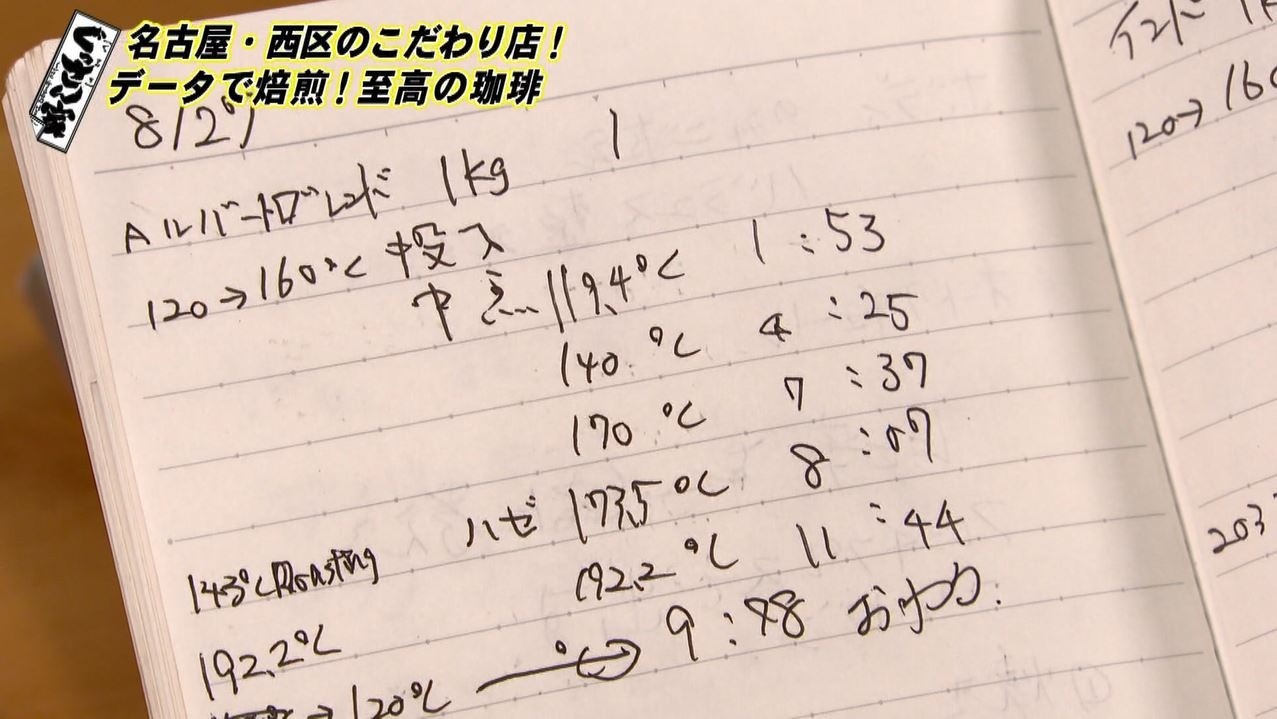 名古屋・西区のこだわり店!
データで焙煎!至高の珈琲
ぐっさん家
1
アルバートブレンド 1kg
120→160℃ 投入
中点 119.4℃ 1:53
140℃ 4:25
170℃ 7:37
ハゼ 173.5℃ 8:07
192.2℃ 11:44
143℃ Roasting
192.2℃
→120℃ → 9:48 おわり.
インド
120→160
203